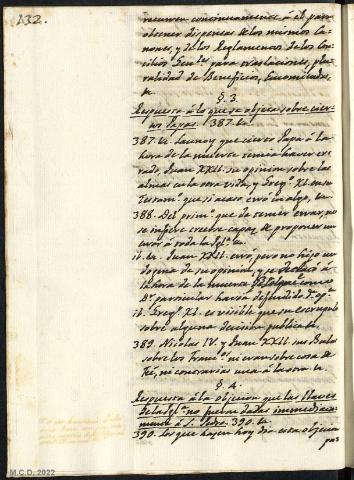 132.
recurren continuamente á él para
obtener dispensas de los mismos Ca-
nones, y de los Reglamentos de los Con-
cilios Gen.les para traslaciones, plu-
ralidad de Beneficios, Encomiendas,
&.
§. 3.
Respuesta á lo que se objeta sobre cier-
tos Papas. 387. &.
387. &. Launoy que ciertos Papas á la
hora de la muerte temian haver er-
rado, Juan XXII. su opinion sobre las
almas en la otra vida, y Greg.o XI. en su
Testam.to que si acaso erró en algo, &.
388. Del prim.o que de temer errar, no
se infiere creerse capaz de proponer un
error á toda la Igl.a &.
ib. &. Juan XXII. erró, pero no hizo un
dogma de su opinion, y se declaró á
la hora de la muerte
D.r particular havia defendido
ib. Greg.o XI. es visible que su escrupulo
sobre alguna decision publica &.
389. Nicolas IV. y Juan XXII. sus Bulas
sobre los Fran.os ni eran sobre cosa de
Fee, ni contrarias una á la otra. &.
§. 4.
Respuesta á la objecion que las llaves
de la Igl.a no fueron dadas inmediata-
mente á S. Pedro. 390. &.
390. Los que hazen hoy dia esta objecion
M.C.D. 2022